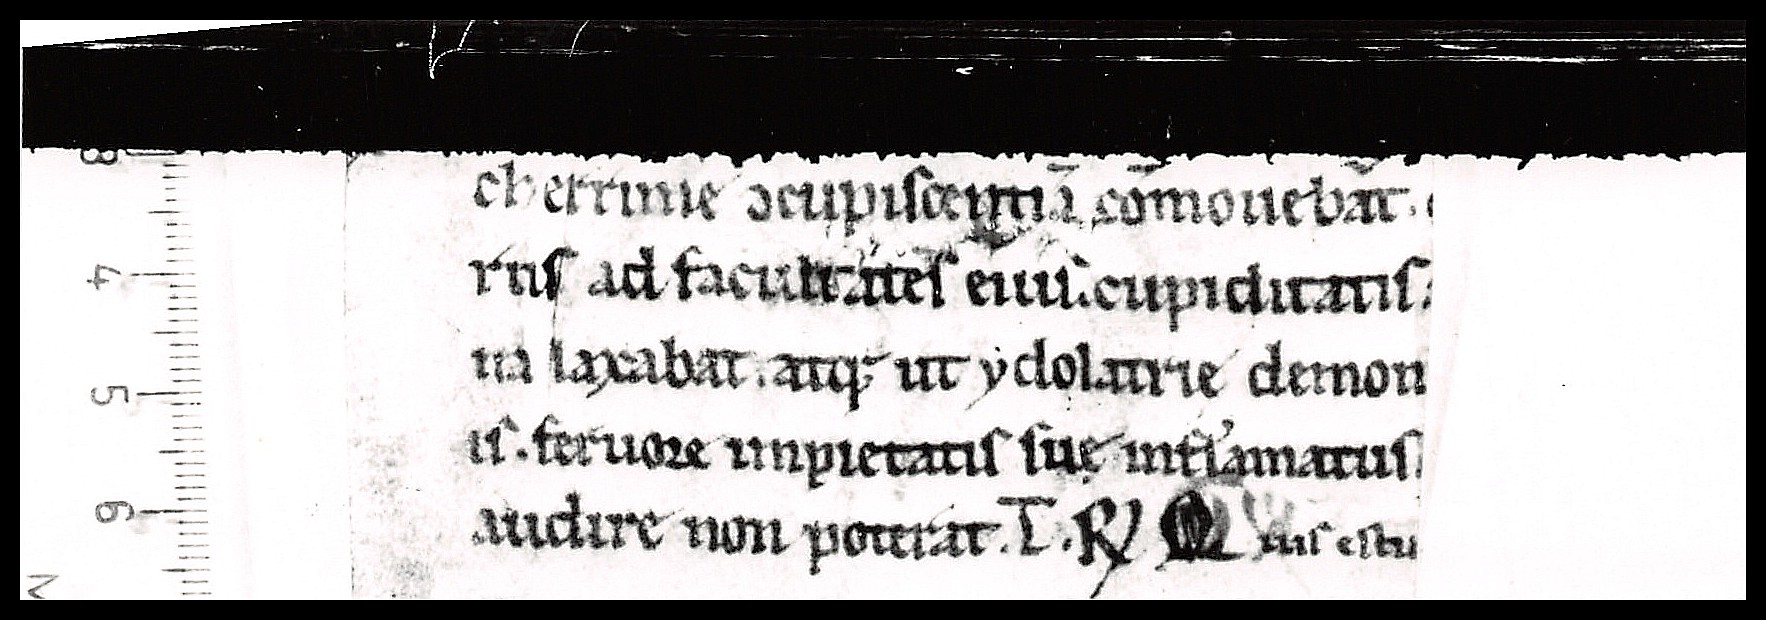 cherrime ɔcupiscentiā cōmouebāt.
rtis ad facultates eius. cupiditatis.
na laxabat. atq; ut ydolatrie demon
is. feruore impietatis suę inflamatus.
audire non poterat. T. R Quis es tu